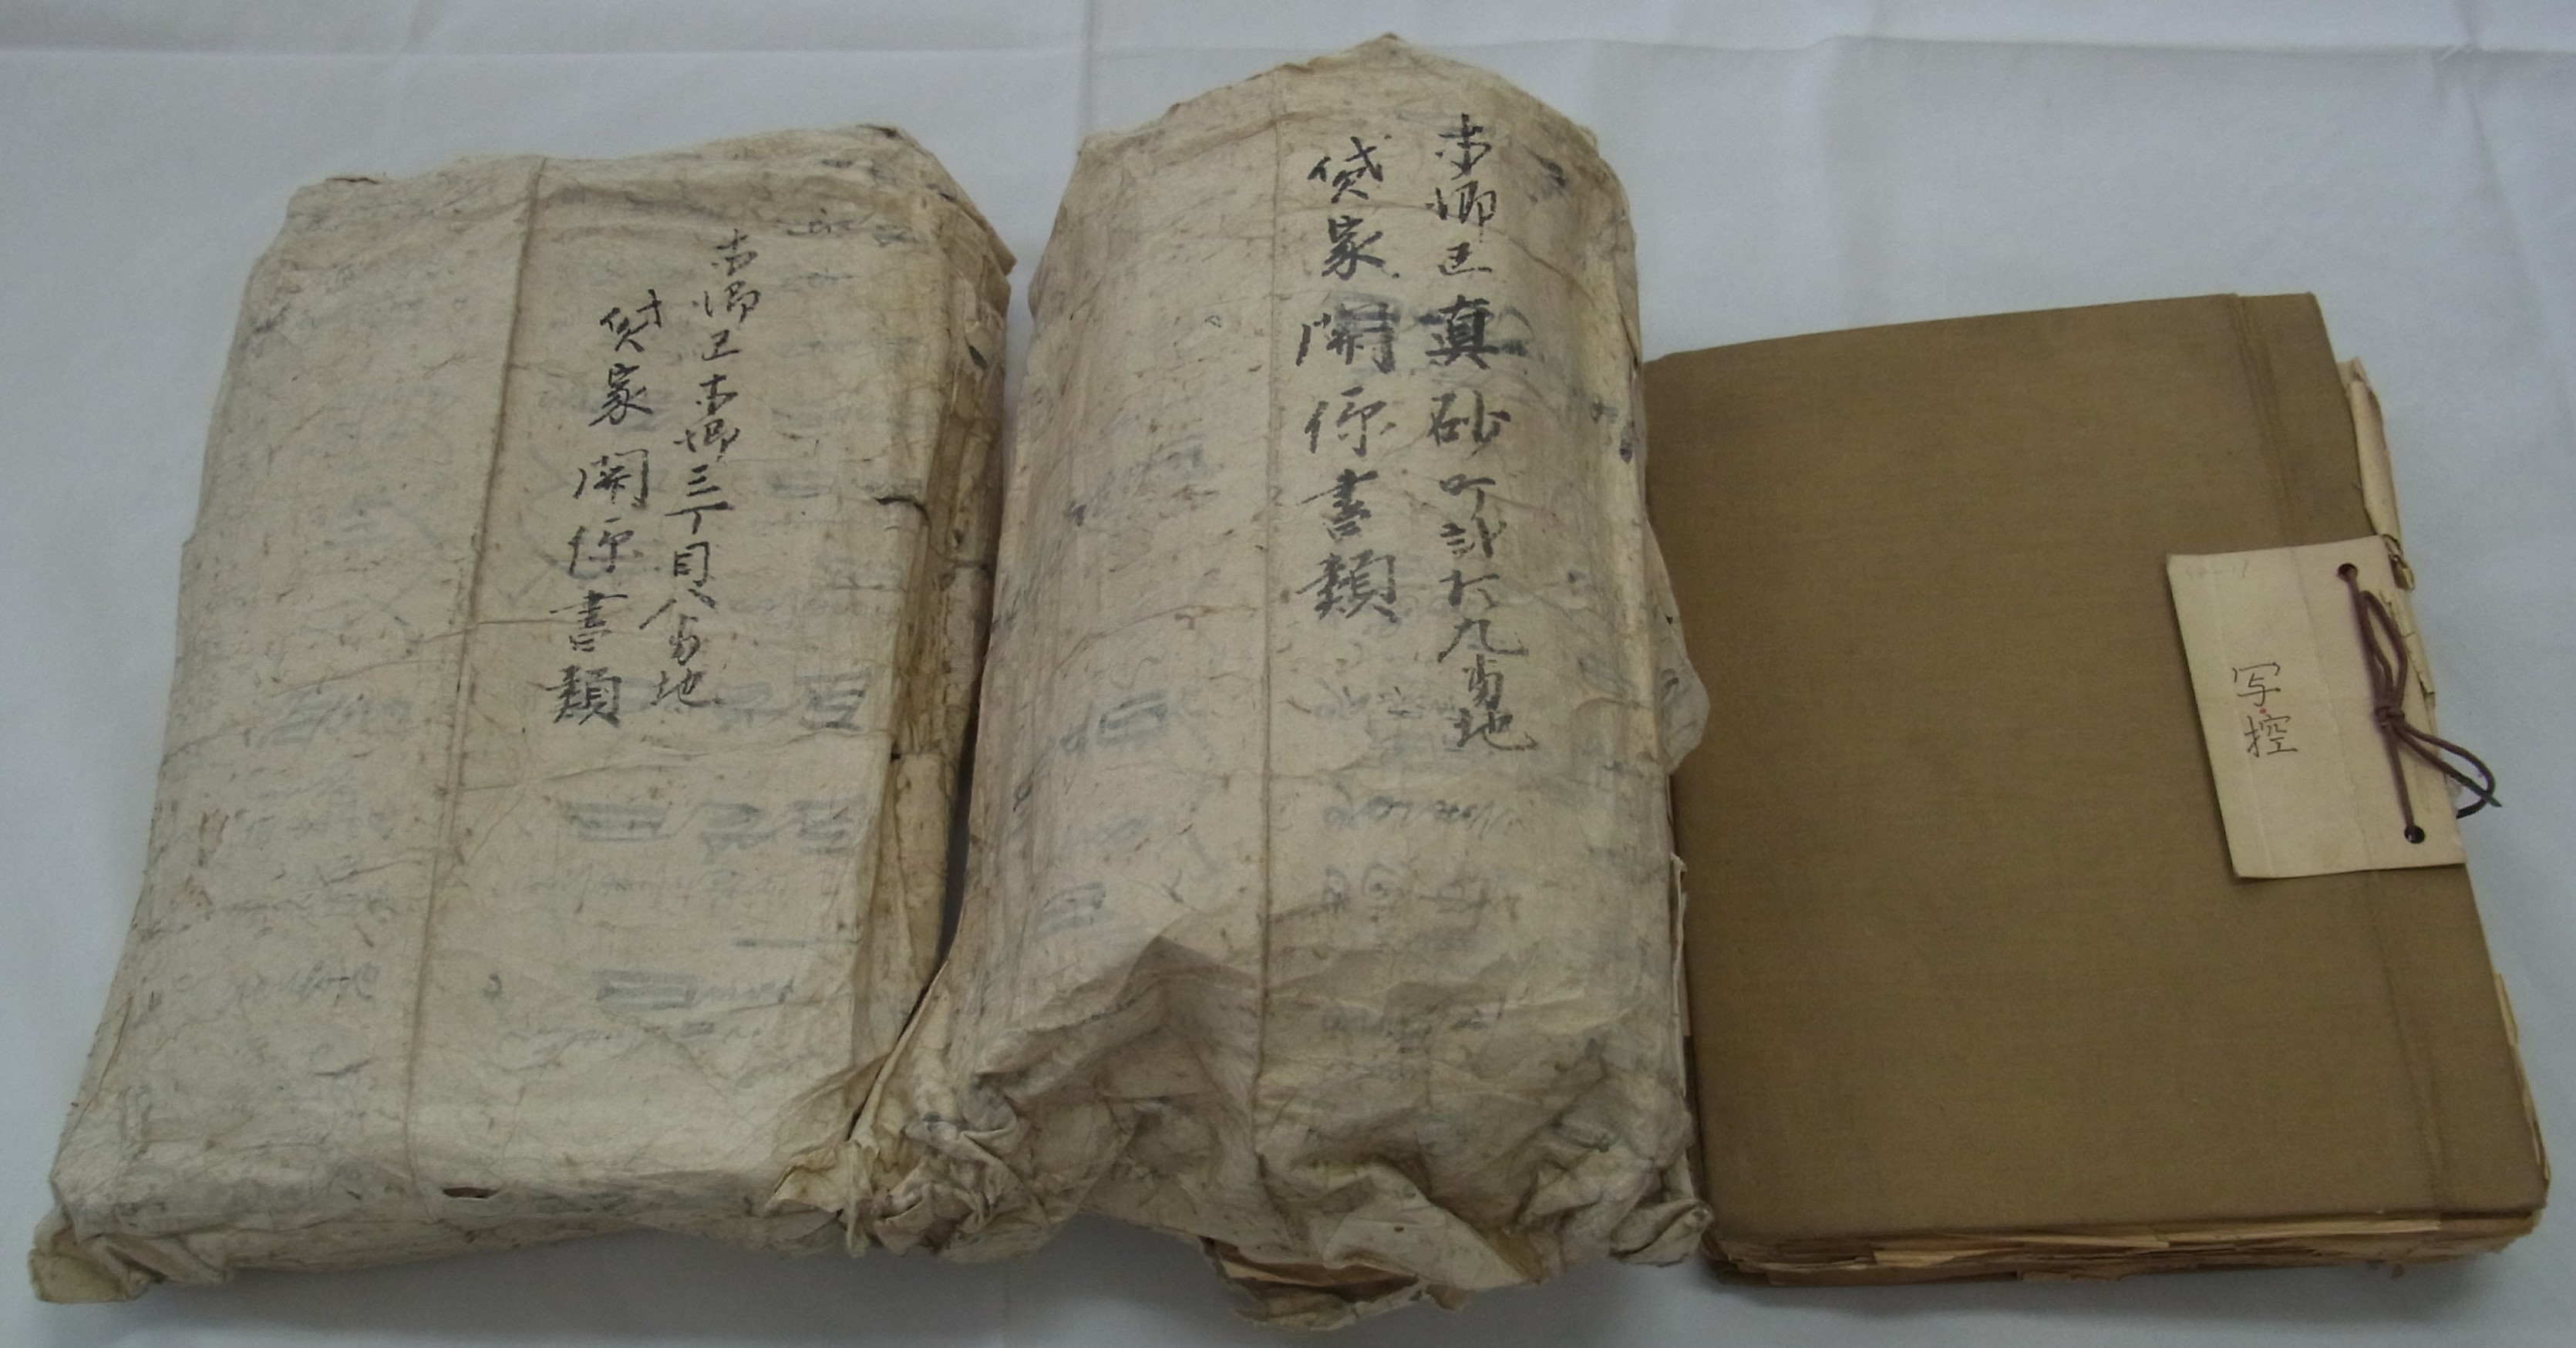 本郷区本郷三丁目八番地
貸家関係書類
本郷区真砂町弐拾九番地
貸家関係書類
写控